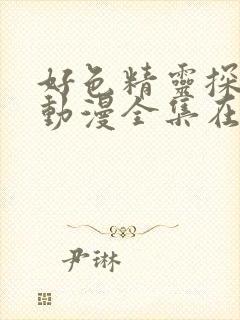 好色精靈探
動漫全集在
尹琳